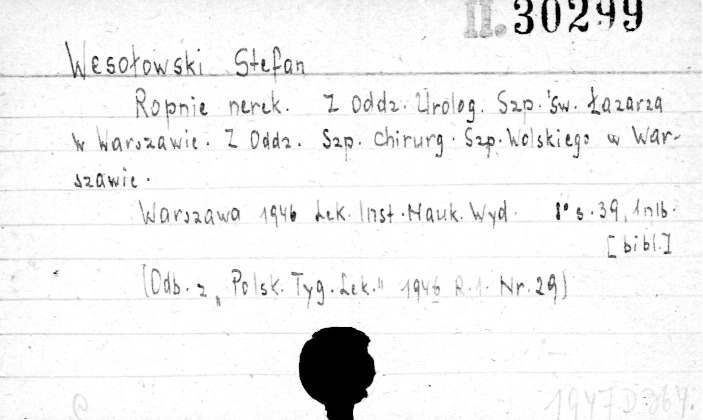 II. 30299
Wesołowski Stefan
Ropnie nerek. Z Oddz. Urolog. Szp. św. Łazarza
w Warszawie. Z Oddz. Szp. Chirurg. Szp. Wolskiego w War-
szawie.
Warszawa 1946 Lek. Inst. Nauk. Wyd. 8° s. 39, 1 nlb.
[bibl.]
(Odb. z „Polsk. Tyg. Lek." 1946 R. 1. Nr. 29)
1947 D 364.